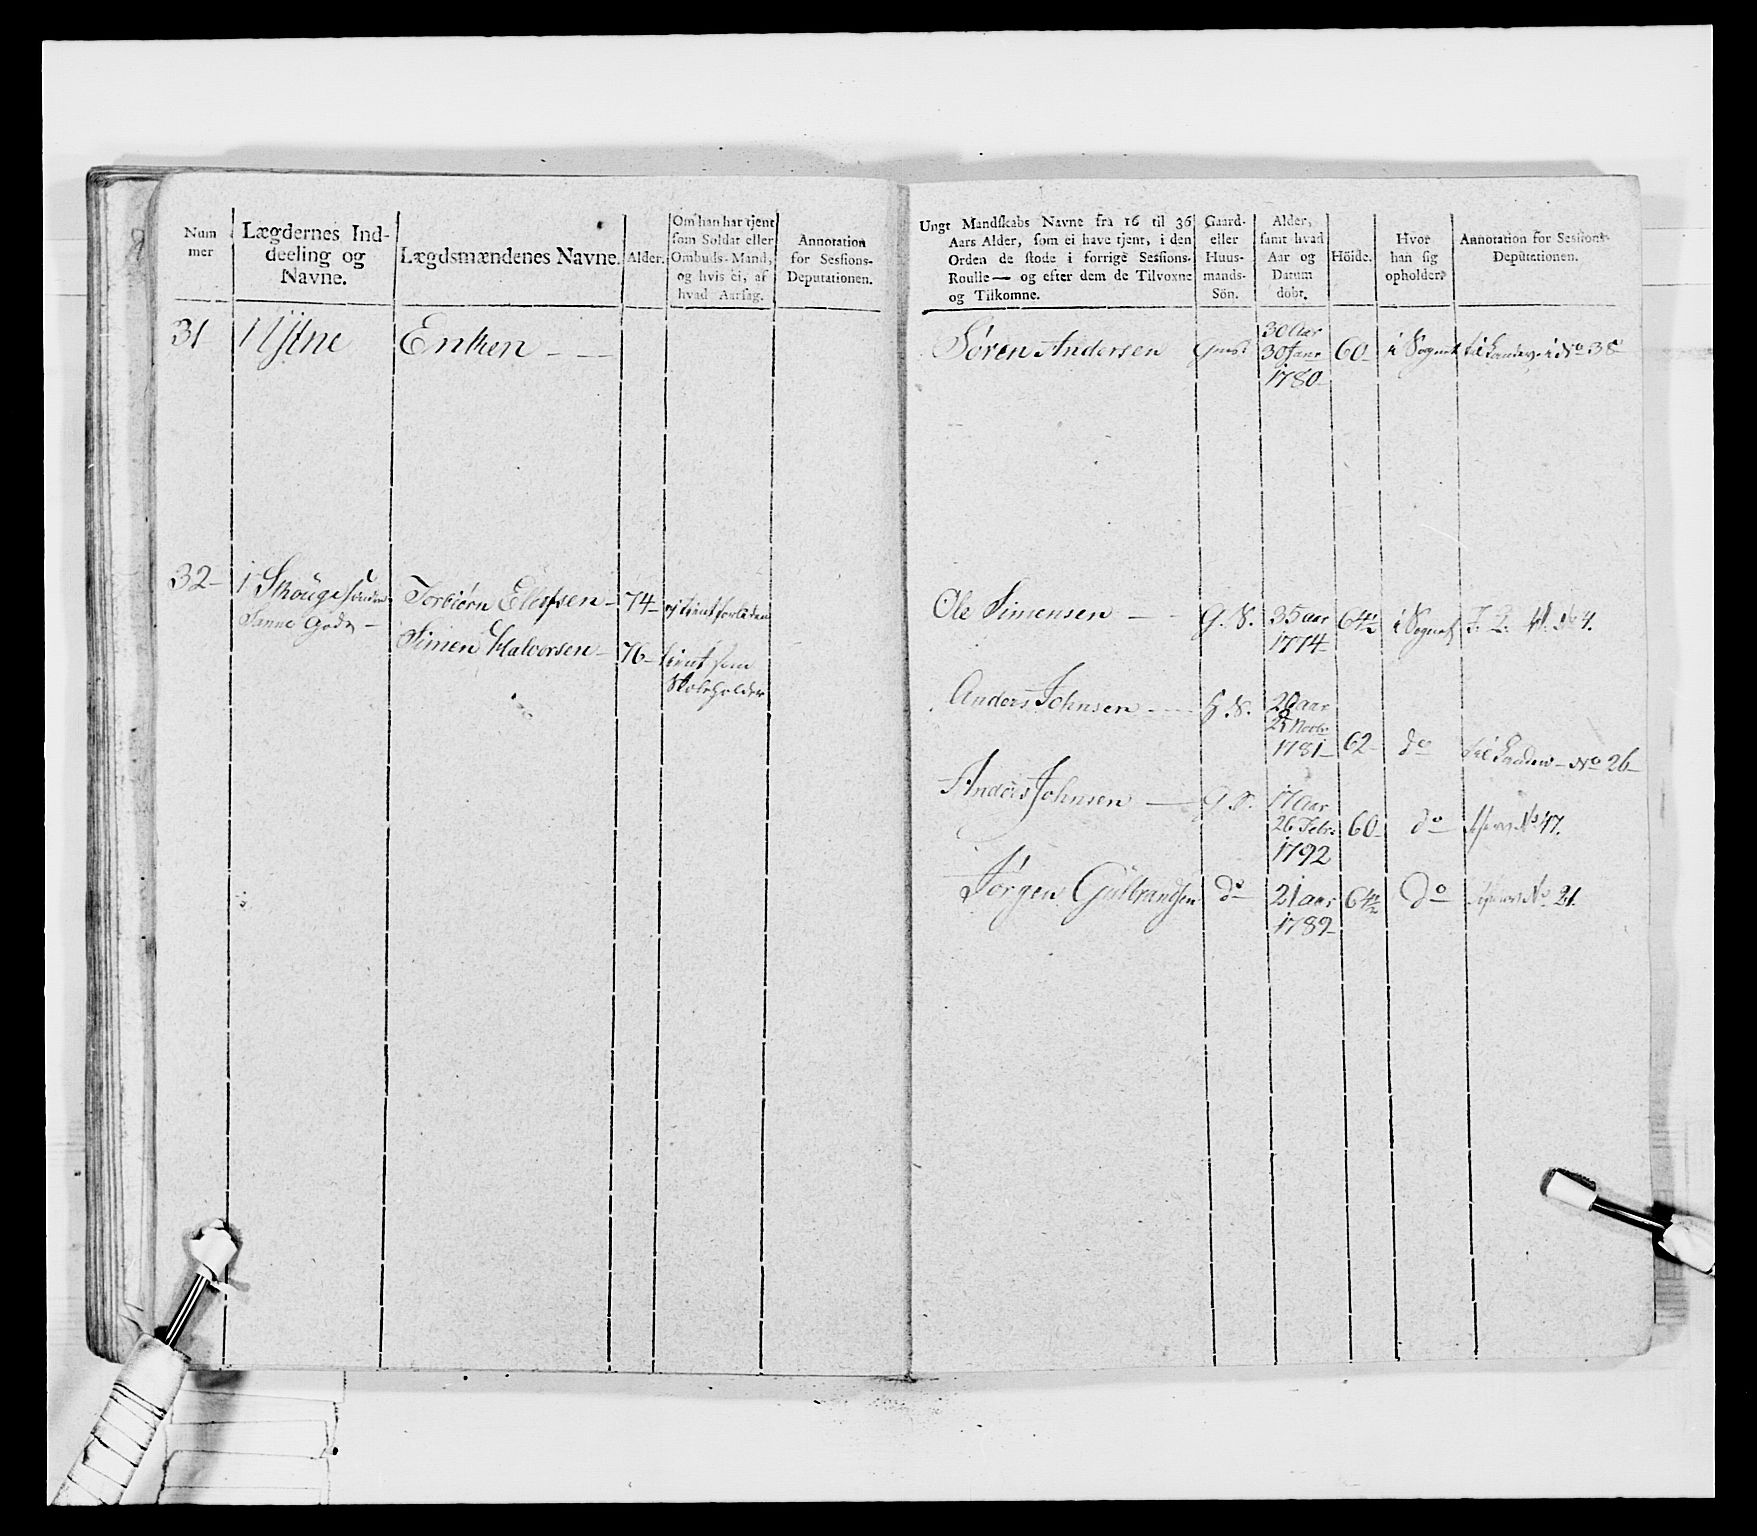 Num
mer
Lægdernes Ind-
deeling og
Navne.
Lægdsmændenes Navne.
Alder.
Om han har tjent
som Soldat eller
Ombuds-Mand,
og hvis ei, af
hvad Aarsag.
Annotation
for Sessions-
Deputationen.
Ungt Mandskabs Navne fra 16 til 36
Aars Alder, som ei have tjent, i den
Orden de stode i forrige Sessions-
Roulle — og efter dem de Tilvoxne
og Tilkomne.
Gaard-
eller
Huus-
mands-
Sön.
Alder,
samt hvad
Aar og
Datum
döbt.
Höide.
Hvor
han sig
opholder.
Annotation for Sessions-
Deputationen.
31
Enken - —
Søren Andersen
30 Aar
30 Janr
1780-
60-
i Sognet
til Landev. i No 38
32-
Torbiørn - 74-
Simen Halvorsen - 76-
tient som
Skoleholder
Ole Simensen — -
G. S.
35 aar
1774-
64½
i Sognet
No 4.
Anders Johnsen - —
G. S.
1781-
62-
do
til No 26-
Anders Johnsen —
G. S.
17 Aar
26 Febr
1792
60-
do
No 47.
Jørgen Gulbrandsen
do
21 aar
1789-
64½
do
No 21.